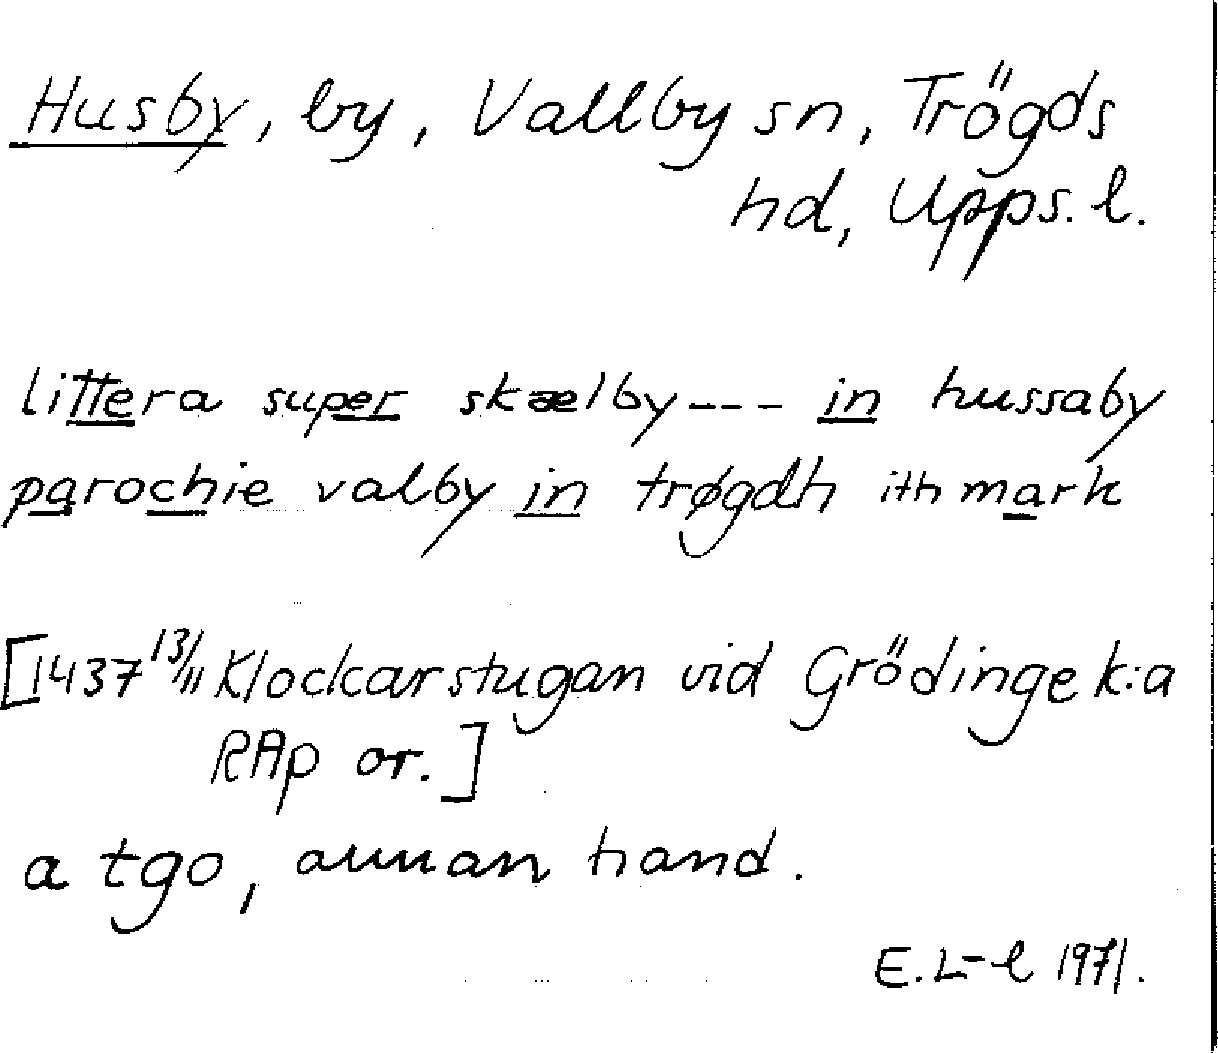 Husby, by, Vallby sn, Trögds
hd, Upps. l.
littera super skælby --- in hussaby
parochie valby in trøgdh ith mark
[1437 13/11 Klockarstugan vid Grödinge k:a
RAp or.]
a tgo, annan hand.
E. L-l 1971.